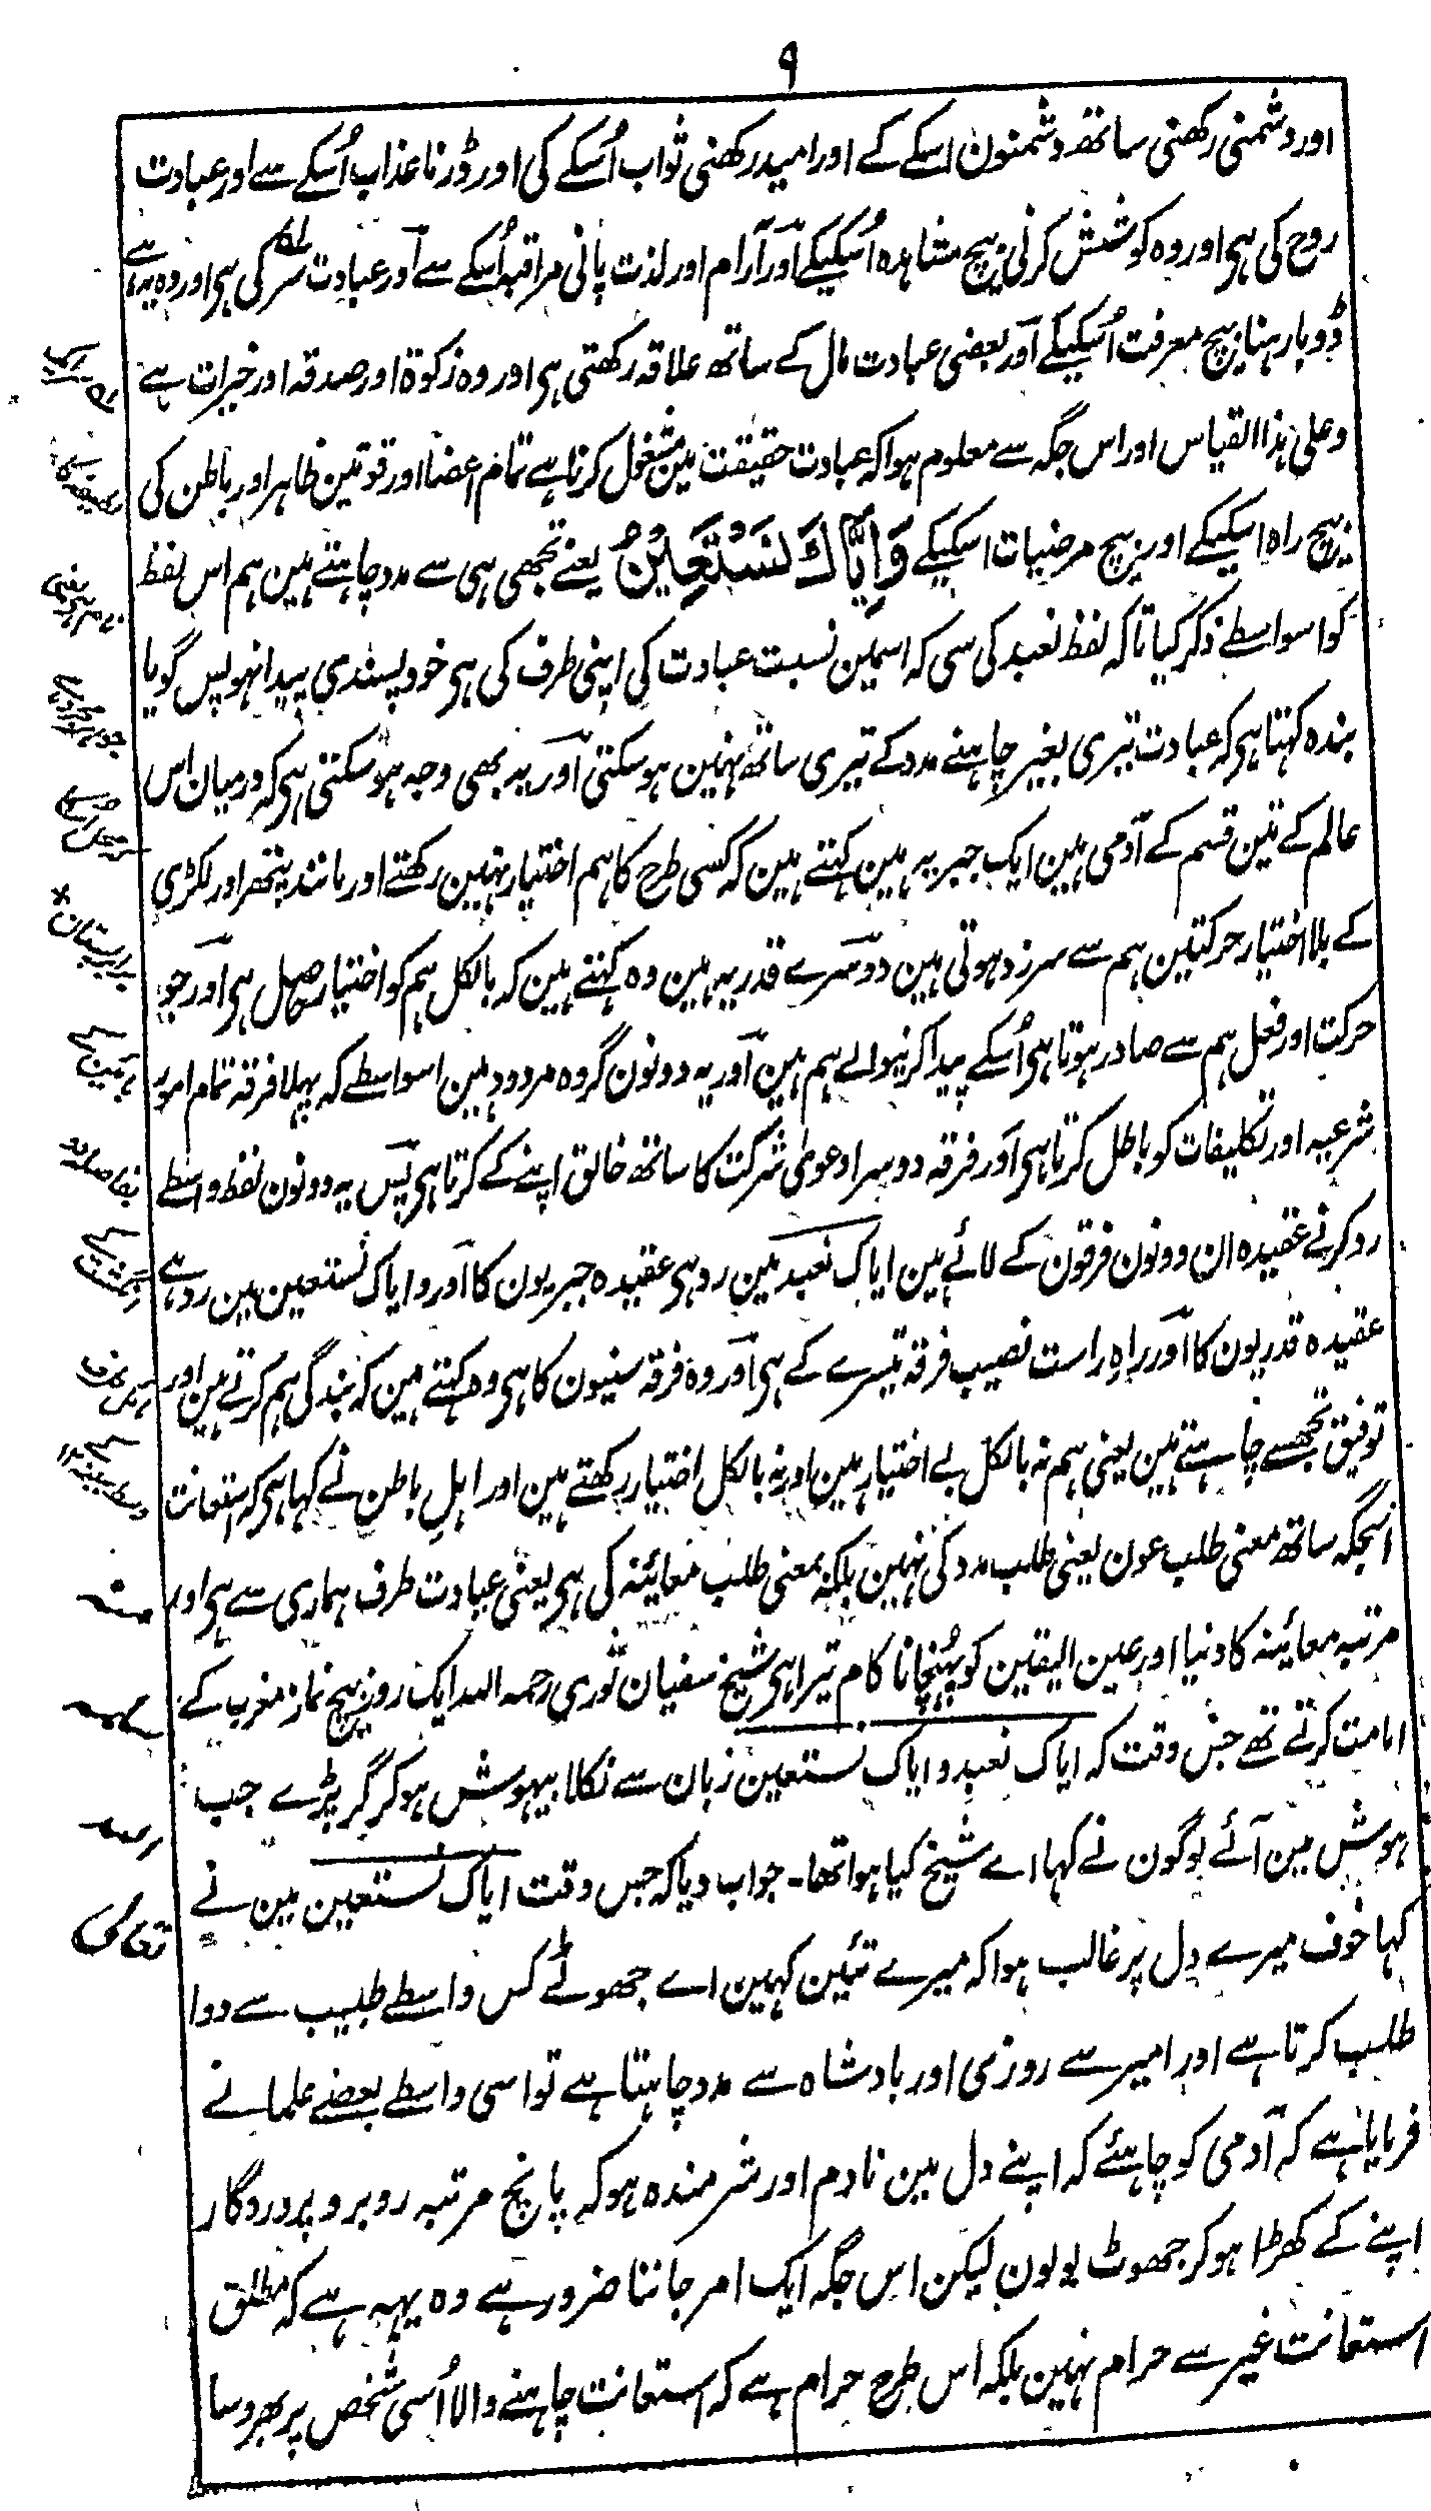 ۹
اور دشمنی رکھنی ساتھ دشمنون اسکے کے اور امید رکھنی ثواب اُسکے کی اور ڈرنا عذاب اُسکے سے اور عبادت
روح کی ہی اور وہ کوشش کرنی بیچ مشاہدہ اُسکیکے اور آرام اور لذت پانی مراقبہ اُسکے سے اور عبادت سر کی ہی اور وہ یہ ہے
ڈوبا رہنا بیچ معرفت اُسکیکے اور بعضی عبادت مال کے ساتھ علاقہ رکھتی ہی اور وہ زکوٰۃ اور صدقہ اور خیرات ہے
وعلی ہذا القیاس اور اس جگہ سے معلوم ہوا کہ عبادت حقیقت مین مشغول کرنا ہے تمام اعضا اور قوتین ظاہر اور باطن کی
بیچ راہ اسکیکے اور بیچ مرضیات اسکیکے وَاِیَّاكَ نَسْتَعِیْنُ یعنے تجھی ہی سے مدد چاہتے ہین ہم اس لفظ
کو اسواسطے ذکر کیا تاکہ لفظ نعبد کی سی کہ اسمین نسبت عبادت کی اپنی طرف کی ہی خود پسندی پیدا نہو پس گویا
بندہ کہتا ہی کہ عبادت تیری بغیر چاہنے مدد کے تیری ساتھ نہین ہو سکتی اور یہ بھی وجہ ہو سکتی ہی کہ درمیان اس
عالم کے تین قسم کے آدمی ہین ایک جبریہ ہین کہتے ہین کہ کسی طرح کا ہم اختیار نہین رکھتے اور مانند پتھر اور لکڑی
کے بلا اختیار حرکتین ہم سے سرزد ہوتی ہین دوسرے قدریہ ہین وہ کہتے ہین کہ بالکل ہم کو اختیار حاصل ہی اور جو
حرکت اور فعل ہم سے صادر ہوتا ہی اُسکے پیدا کرنیوالے ہم ہین اور یہ دونون گروہ مردود ہین اسواسطے کہ پہلا فرقہ تمام امور
شرعیہ اور تکلیفات کو باطل کرتا ہی اور فرقہ دوسرا دعوی شرکت کا ساتھ خالق اپنے کے کرتا ہی پس یہ دونون لفظ واسطے
رد کرنے عقیدہ ان دونون فرقون کے لائے ہین ایاک نعبد مین رد ہی عقیدہ جبریون کا اور وایاک نستعین مین رد ہے
عقیدہ قدریون کا اور راہ راست نصیب فرقہ تیسرے کے ہی اور وہ فرقہ سنیون کا ہی وہ کہتے ہین کہ بندگی ہم کرتے ہین اور
توفیق تجھسے چاہتے ہین یعنی ہم نہ بالکل بے اختیار ہین اور نہ بالکل اختیار رکھتے ہین اور اہل باطن نے کہا ہی کہ استعانت
اسجگہ ساتھ معنی طلب عون یعنی طلب مدد کی نہین بلکہ بمعنی طلب معائنہ کی ہی یعنی عبادت طرف ہماری سے ہی اور
مرتبہ معائنہ کا دنیا اور عین الیقین کو پہنچانا کام تیرا ہی شیخ سفیان ثوری رحمہ اللہ ایک روز بیچ نماز مغرب کے
امامت کرتے تھے جس وقت کہ ایاک نعبد وایاک نستعین زبان سے نکلا بیہوش ہو کر گر پڑے جب
ہوش مین آئے لوگون نے کہا اے شیخ کیا ہوا تھا۔ جواب دیا کہ جس وقت ایاک نستعین مین نے
کہا خوف میرے دل پر غالب ہوا کہ میرے تئین کہین اے جھوٹے کس واسطے طبیب سے دوا
طلب کرتا ہے اور امیر سے روزی اور بادشاہ سے مدد چاہتا ہے تو اسی واسطے بعضے علما نے
فرمایا ہے کہ آدمی کو چاہئے کہ اپنے دل مین نادم اور شرمندہ ہو کہ پانچ مرتبہ روبرو پروردگار
اپنے کے کھڑا ہو کر جھوٹ بولون لیکن اس جگہ ایک امر جاننا ضرور ہے وہ یہہ ہے کہ مطلق
استعانت غیر سے حرام نہین بلکہ اس طرح حرام ہے کہ استعانت چاہنے والا اُسی شخص پر بھروسا
تعالی